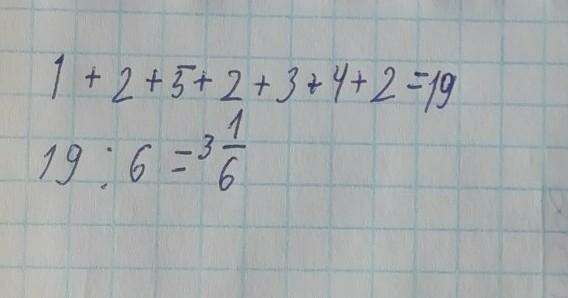 1 + 2 + 5 + 2 + 3 + 4 + 2 = 19
19 : 6 = 3 1/6